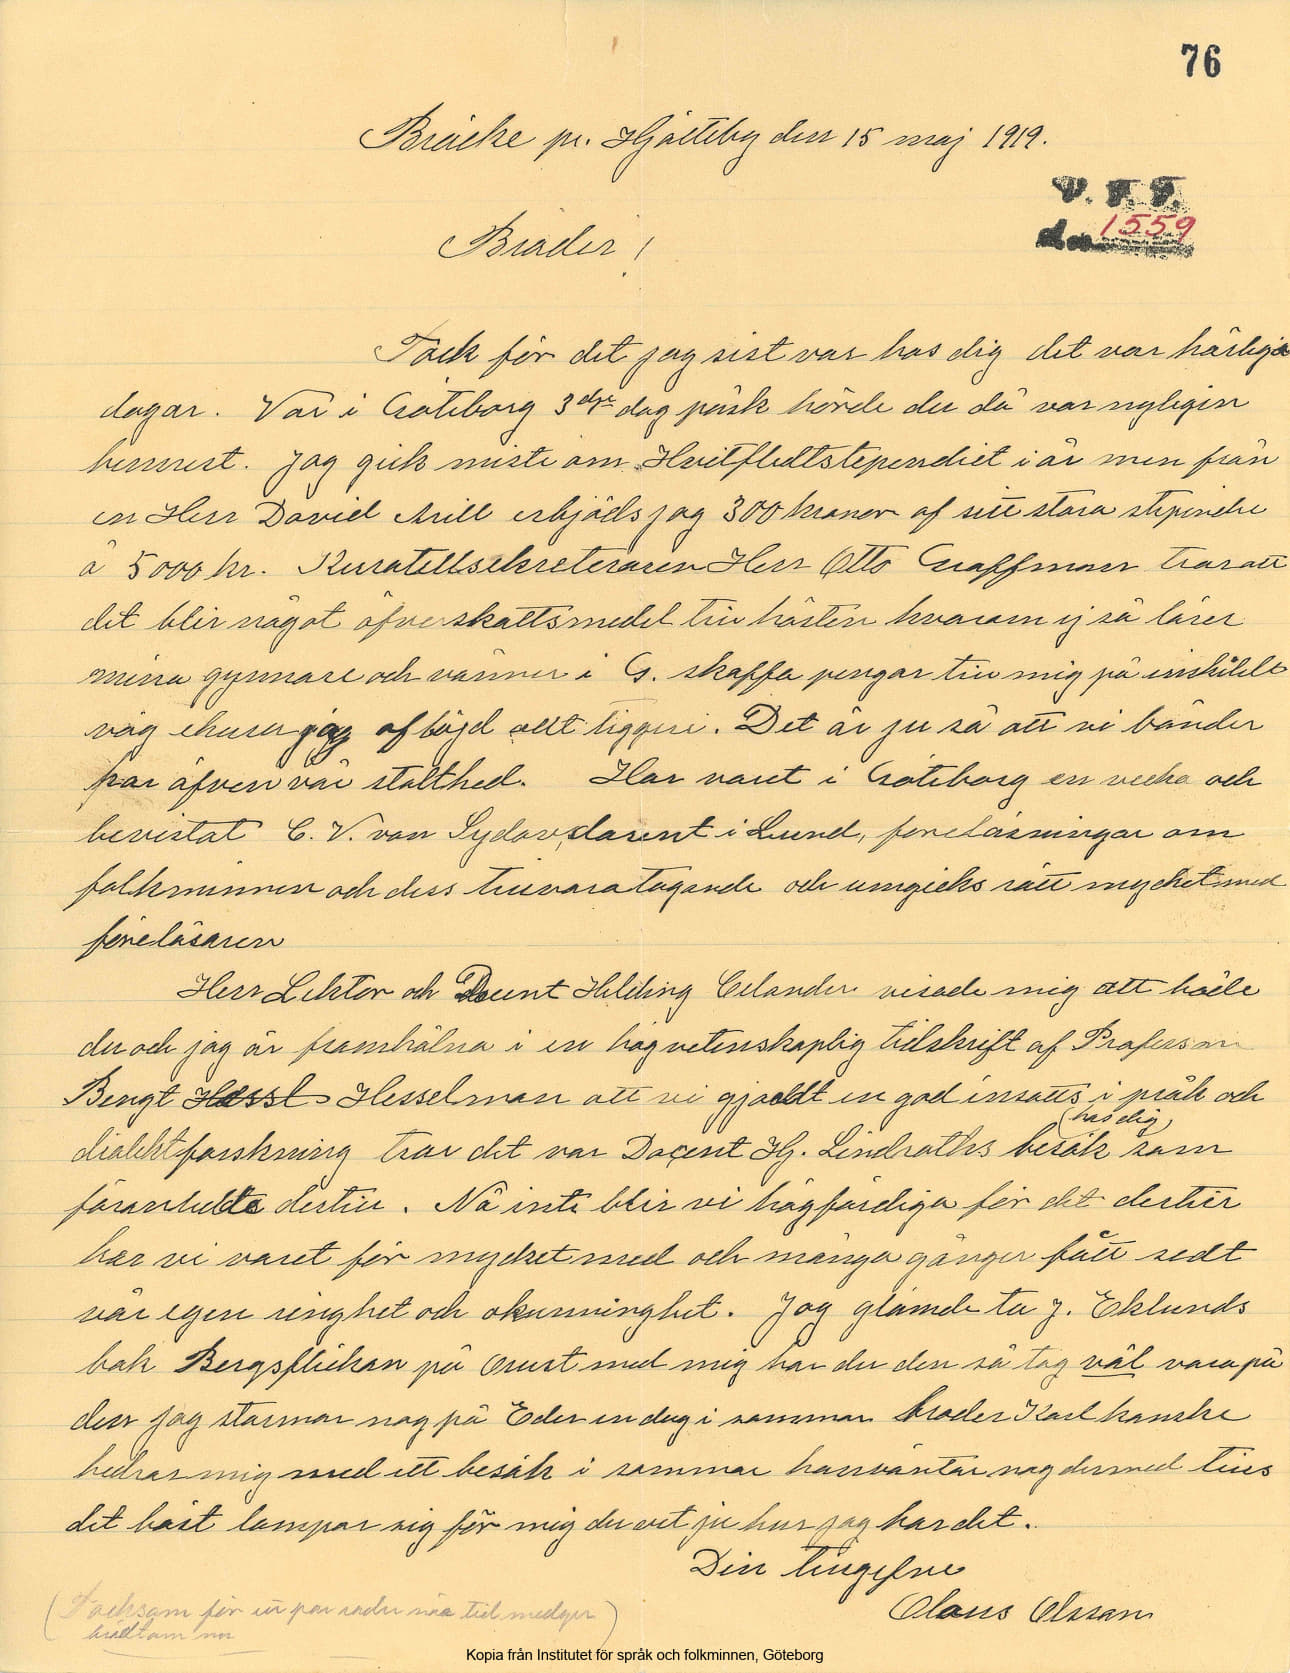 76
Bräcke pr. Hjälteby den 15 maj 1919.
V. F. F.
dnr 1559
Broder!
Tack för det jag sist var hos dig det var härliga
dagar. Var i Göteborg 3dje dag påsk hörde du då var nyligen
hemrest. Jag gick miste om Hvitfeldtstependiet i år men från
en Herr David Arill erbjöds jag 300 kronor af sitt stora stipendie
å 5000 kr. Kuratellsekreteraren Herr Otto Gaffman tror att
det blir något öfverskottsmedel till hösten hvarom ej så lärer
mina gynnare och vänner i G. skaffa pengar till mig på enskildt
väg ehuru jag afböjd allt tiggeri. Det är ju så att vi bönder
har äfven vår stolthed. Har varet i Göteborg en vecka och
bevistat C. V. von Sydow, docent i Lund, föreläsningar om
folkminnen och dess tillvaratagande och umgicks rätt mycket med
föreläsaren
Herr Lektor och Docent Hilding Celander visade mig att både
du och jag är framhålna i en högvetenskaplig tidskrift af Professor
Bengt Hessl Hesselman att vi gjordt en god insatts i språk och
(hos dig)
dialektforskning tror det var Docent Hj. Lindroths besök som
föranledde dertill. Nå inte blir vi högfärdiga för det dertill
har vi varet för mycket med och många gånger fått sedt
vår egen ringhet och okunninghet. Jag glömde ta J. Eklunds
bok Bergsflickan på Orust med mig har du den så tag väl vara på
den jag stannar nog på Eder en dag i sommar broder Karl kanske
hedrar mig med ett besök i sommar han väntar nog dermed tills
det bäst lampar sig för mig du vet ju hur jag har det.
Din tillgifne
Olaus Olsson
(Tacksam för ett par rader när tid medger
brådtom nu)
Kopia från Institutet för språk och folkminnen, Göteborg